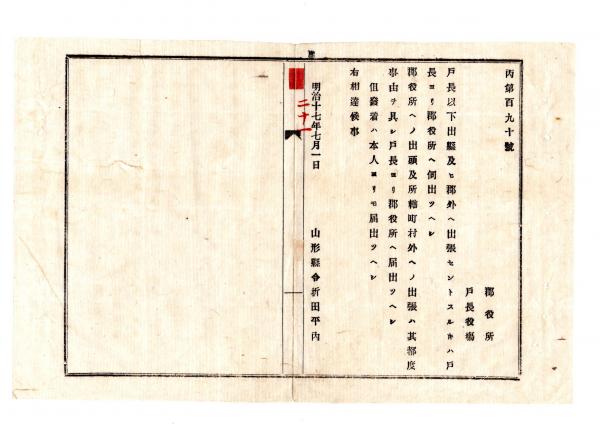 丙第百九十號
郡役所
戸長役場
戸長以下出縣及ヒ郡外ヘ出張セントスルキハ戸
長ヨリ郡役所ヘ伺出ツヘシ
郡役所ヘノ出頭及所轄町村外ヘノ出張ハ其都度
事由ヲ具シ戸長ヨリ郡役所ヘ届出ツヘシ
但發着ハ本人ヨリモ届出ツヘシ
右相達候事
明治十七年七月一日
山形縣令折田平内
二十一